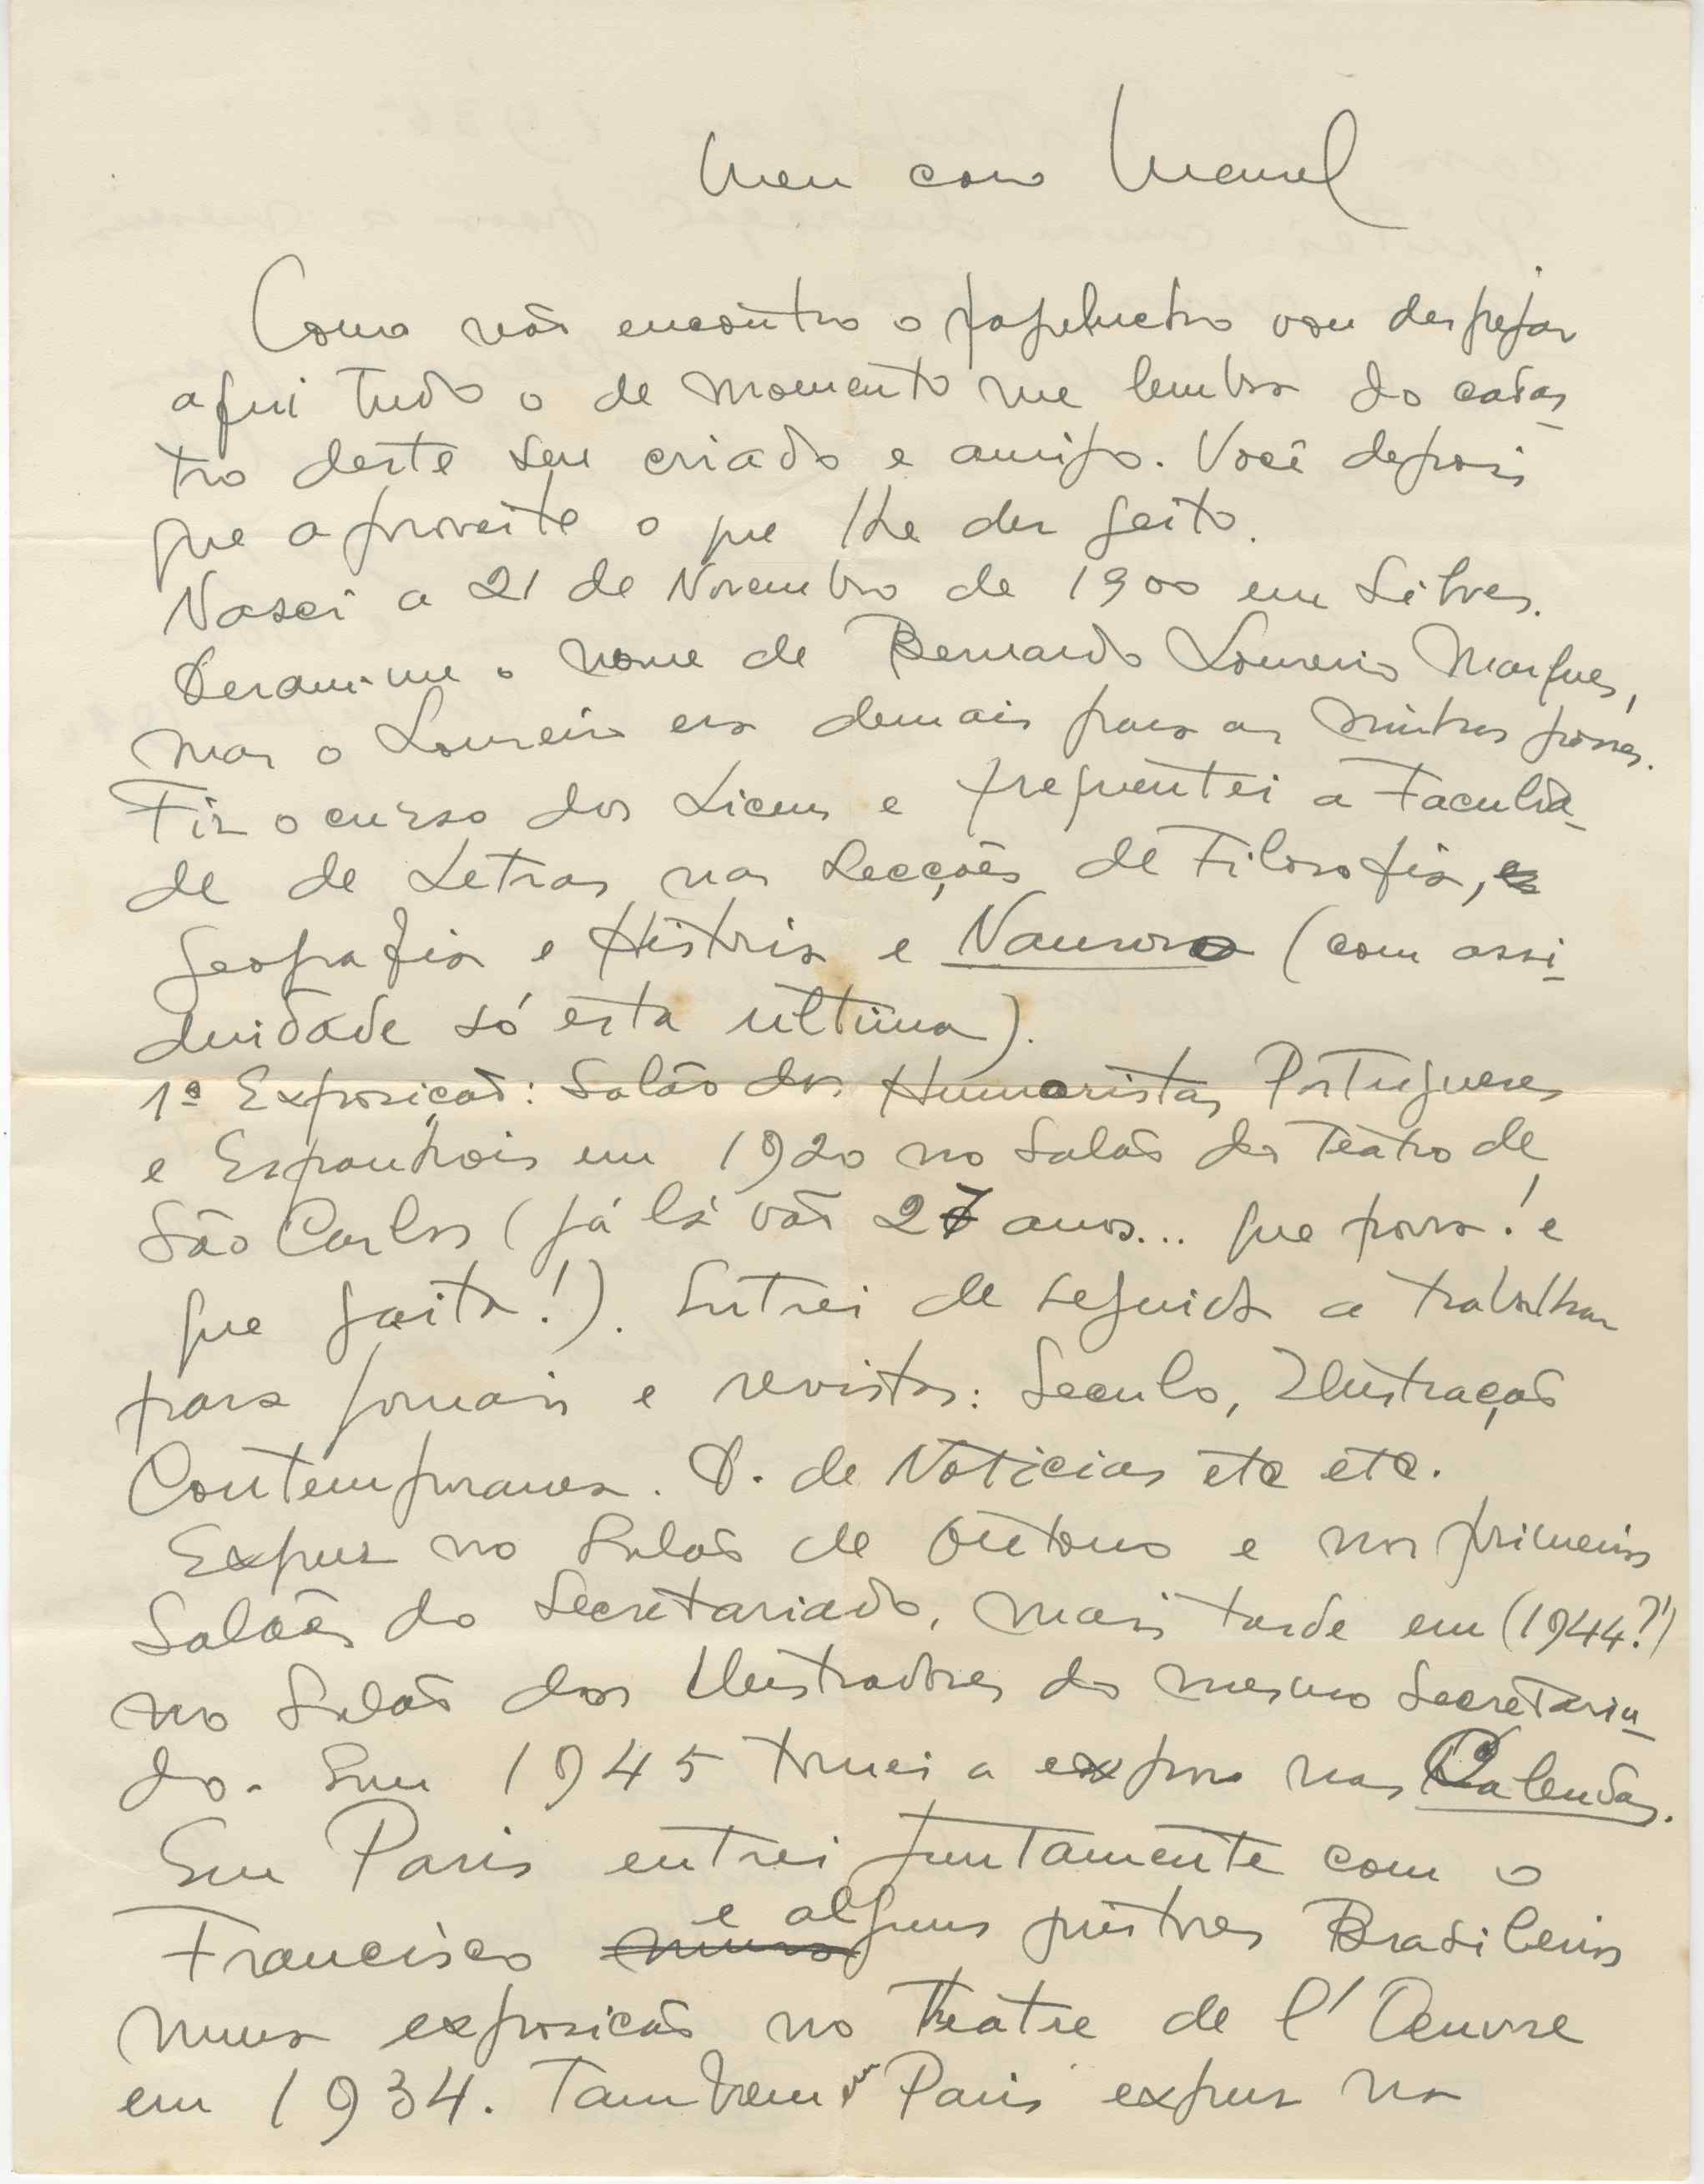 Meu caro Manuel
Como não encontro o papelucho vou despejar
aqui tudo o de momento me lembra do cadas-
tro deste seu criado e amigo. Você depois
que aproveite o que lhe der geito.
Nasci a 21 de Novembro de 1900 em Silves.
Deram-me o nome de Bernardo Loureiro Marques,
mas o Loureiro era demais para as minhas posses.
Fiz o curso dos Liceus e frequentei a Faculda-
de de Letras nas Secções de Filosofia,
Geografia e História e Namoro (com assi-
duidade só esta ultima).
1ª Exposição: Salão dos Humoristas Portugueses
e Espanhois em 1920 no Salão do Teatro de
São Carlos (já lá vão 27 anos... que porra! e
que gaita!). Entrei de seguida a trabalhar
para jornais e revistas: Seculo, Ilustração
Contemporanea. D. de Noticias etc etc.
Expuz no Salão de Outono e nos primeiros
Salões do Secretariado, mais tarde em (1944?)
no Salão dos Ilustradores do mesmo Secretaria-
do. Em 1945 tornei a expor nas Calendas.
Em Paris entrei juntamente com o
Francisco e alguns pintores Brasileiros
numa exposicão no Theatre de l'Oeuvre
em 1934. Tambem em Paris expuz na